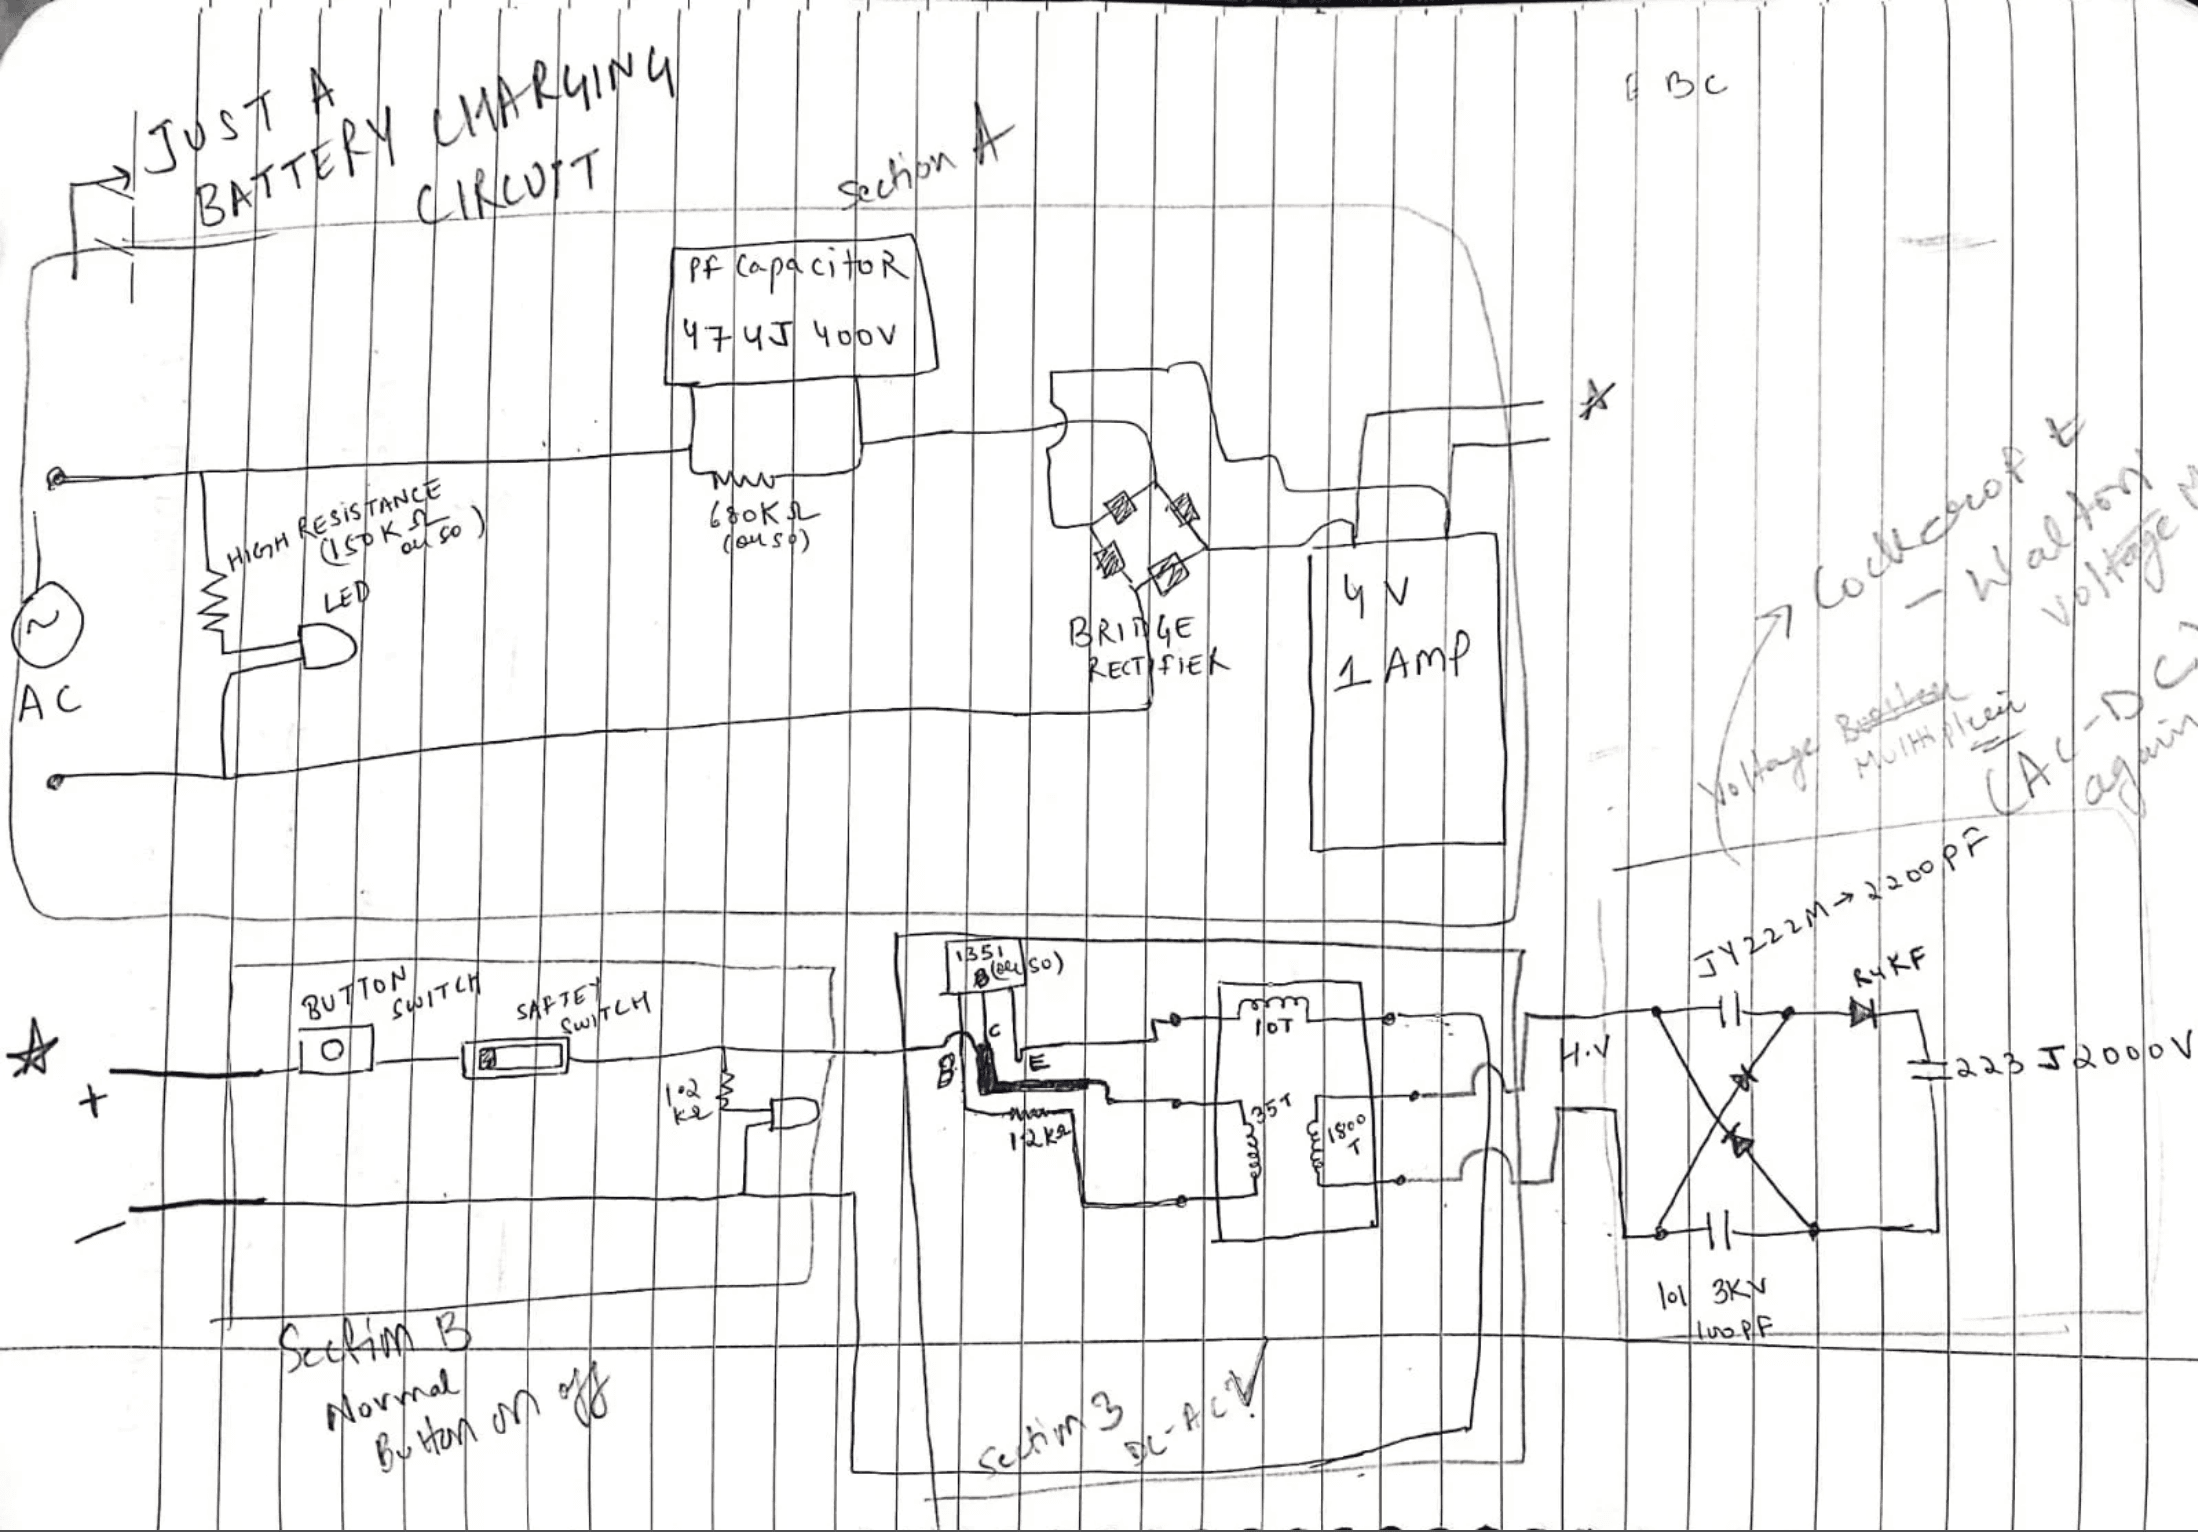 JUST A
BATTERY CHARGING
CIRCUIT
Section A
BC
PF CapacitoR
474J 400V
HIGH RESISTANCE
(150K Ω
or so)
LED
680KΩ
(or so)
AC
BRIDGE
RECTIFIER
4 V
1 AMP
Cockcroft
- Walton
voltage
Voltage
Multiplier
(AC-DC)
again
JY222M → 2200PF
R4KF
223 J 2000V
H.V
101 3KV
100PF
BUTTON
SWITCH
SAFTEY
SWITCH
+
-
1.2
kΩ
1351
(or so)
B
C
E
1.2kΩ
10T
35T
1800
T
Section B
Normal
Button on off
Section 3
DC-AC